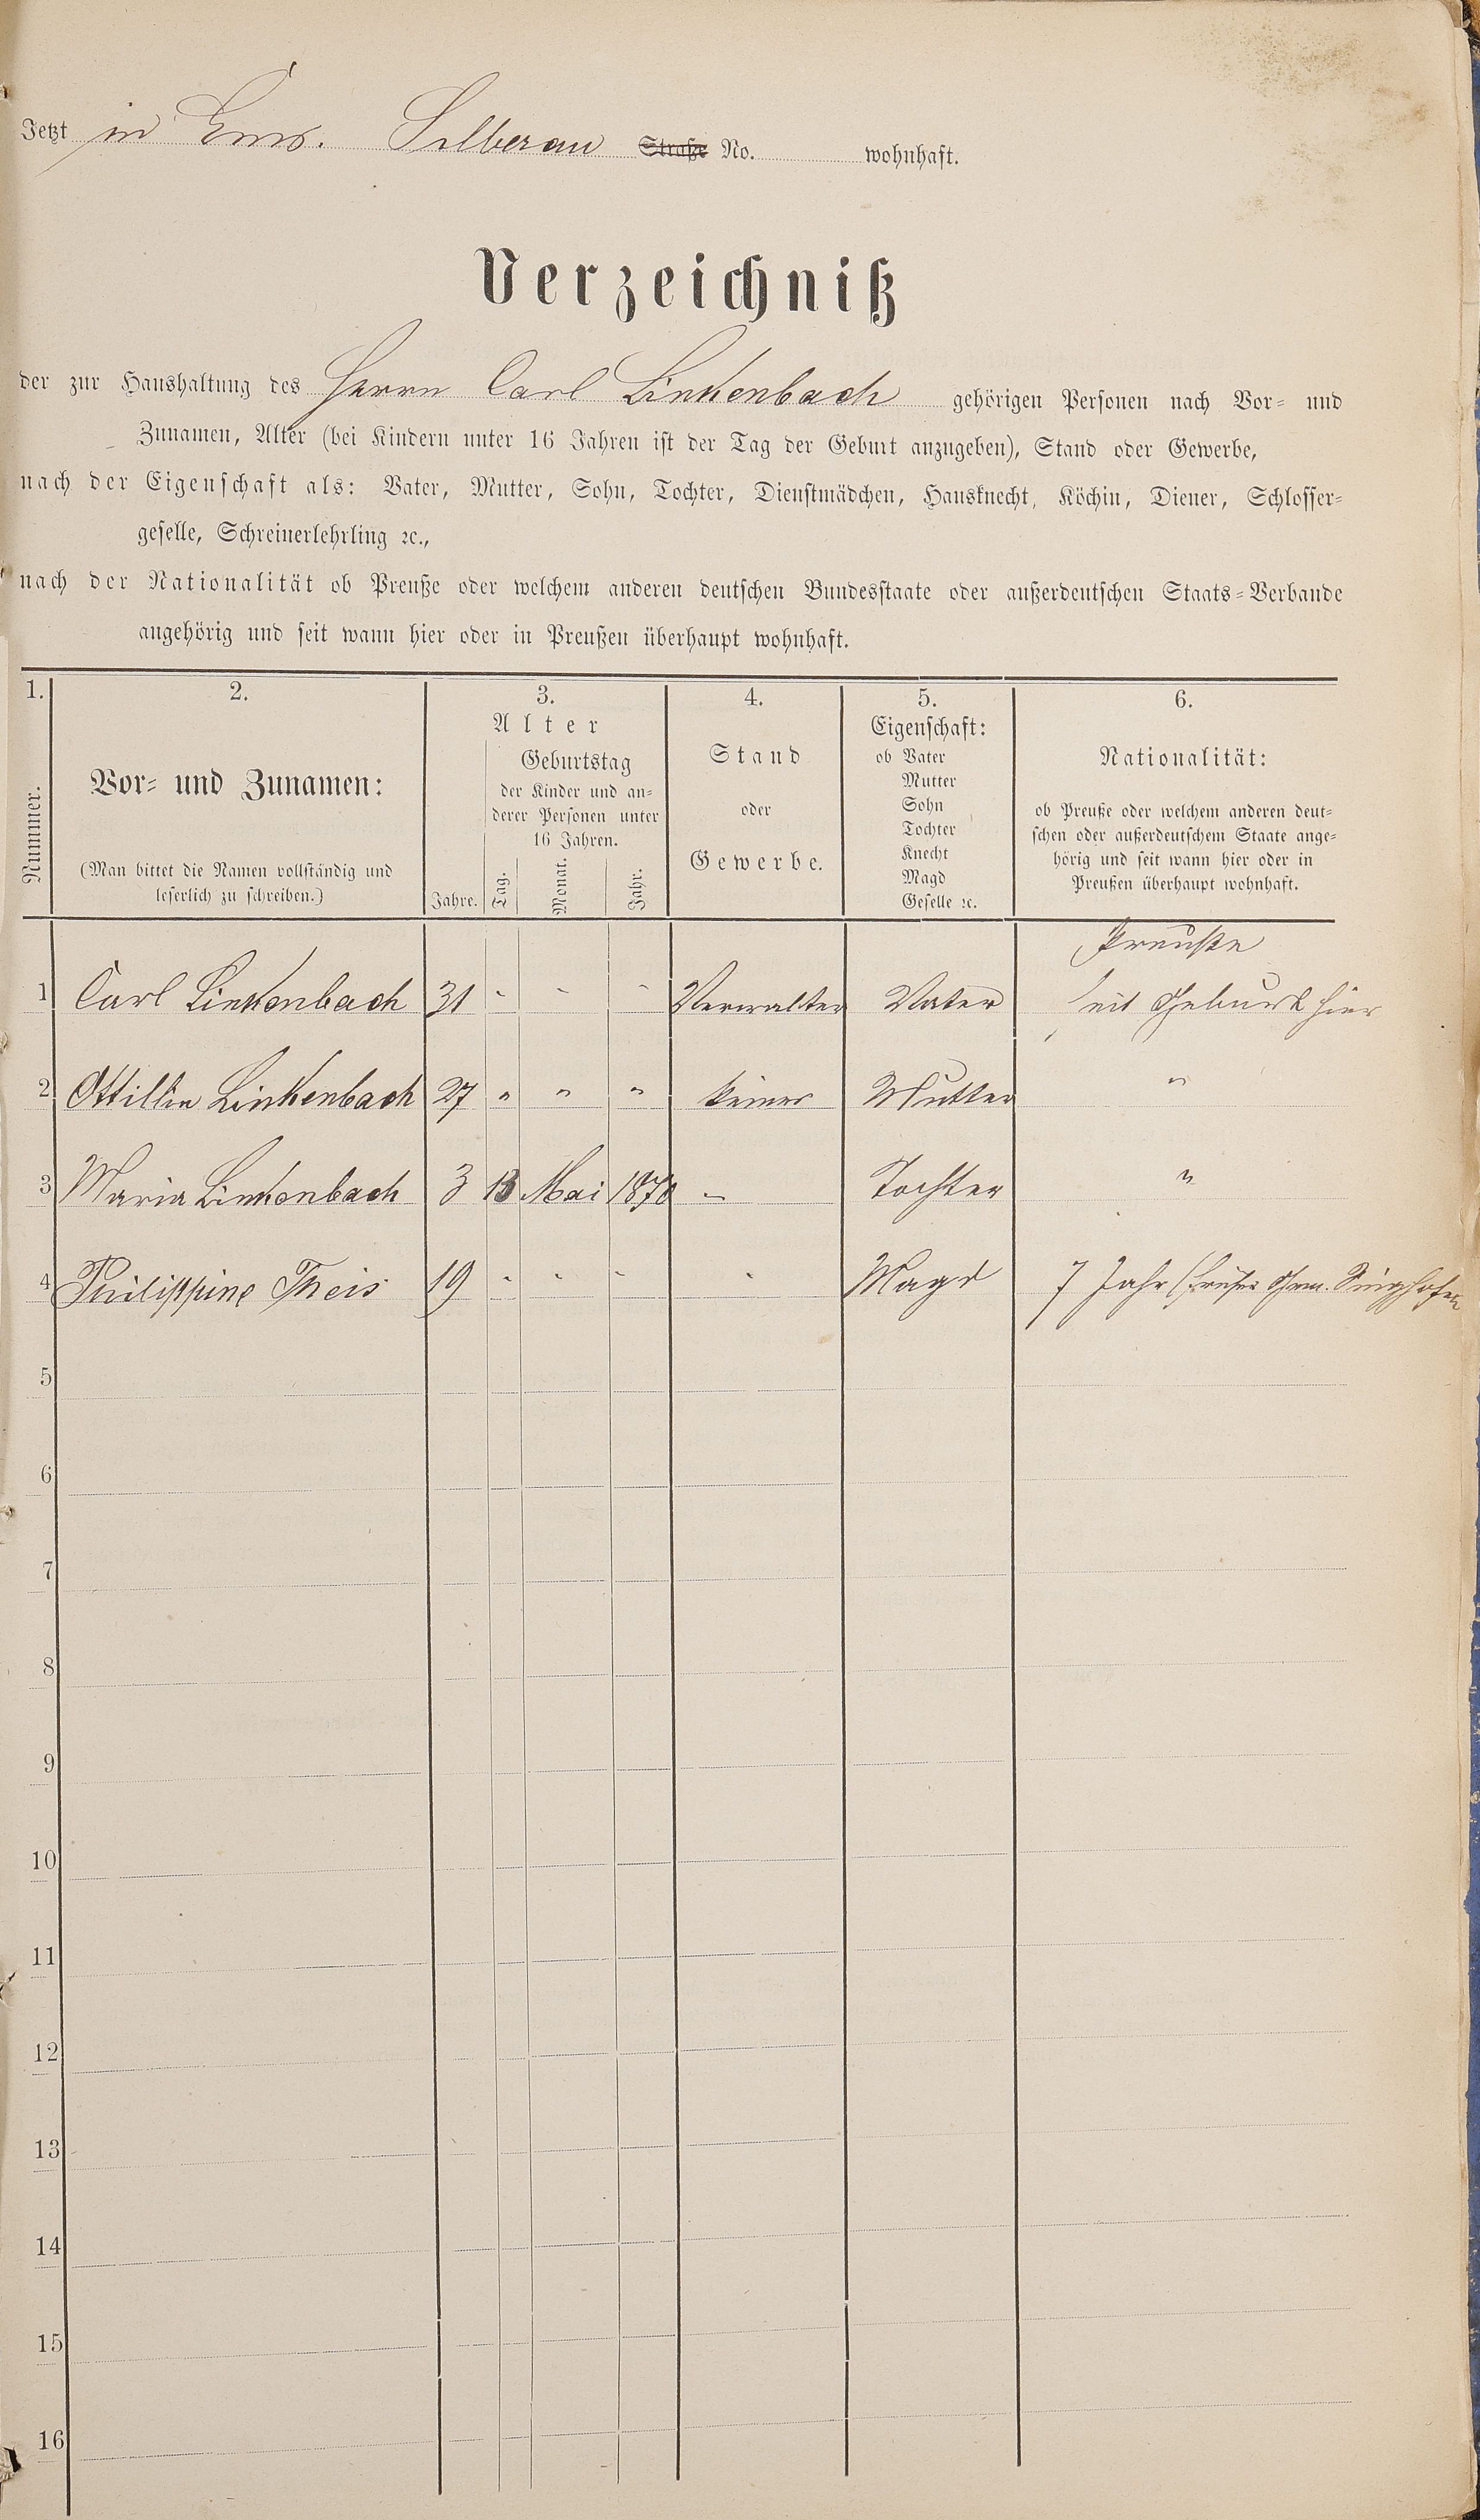 Jetzt in Ems. Silberau Straße No. wohnhaft.
Verzeichniß
der zur Haushaltung des Herrn Carl Linkenbach gehörigen Personen nach Vor- und
Zunamen, Alter (bei Kindern unter 16 Jahren ist der Tag der Geburt anzugeben), Stand oder Gewerbe,
nach der Eigenschaft als: Vater, Mutter, Sohn, Tochter, Dienstmädchen, Hausknecht, Köchin, Diener, Schlosser-
geselle, Schreinerlehrling ꝛc.,
nach der Nationalität ob Preuße oder welchem anderen deutschen Bundesstaate oder außerdeutschen Staats-Verbande
angehörig und seit wann hier oder in Preußen überhaupt wohnhaft.
1. 2. 3. 4. 5. 6.
Nummer.
Vor- und Zunamen:
(Man bittet die Namen vollständig und
leserlich zu schreiben.)
Alter
Jahre.
Geburtstag
der Kinder und an-
derer Personen unter
16 Jahren.
Tag. Monat. Jahr.
Stand
oder
Gewerbe.
Eigenschaft:
ob Vater
Mutter
Sohn
Tochter
Knecht
Magd
Geselle ꝛc.
Nationalität:
ob Preuße oder welchem anderen deut-
schen oder außerdeutschem Staate ange-
hörig und seit wann hier oder in
Preußen überhaupt wohnhaft.
Preuße
1 Carl Linkenbach 31 - - - Verwalter Vater seit Geburt hier
2 Ottillie Linkenbach 27 " " " keiner Mutter "
3 Maria Linkenbach 3 13 Mai 1870 - Tochter "
4 Philippine Theis 19 - - - - Magd 7 Jahr (früher Gem. Singhofen
5
6
7
8
9
10
11
12
13
14
15
16